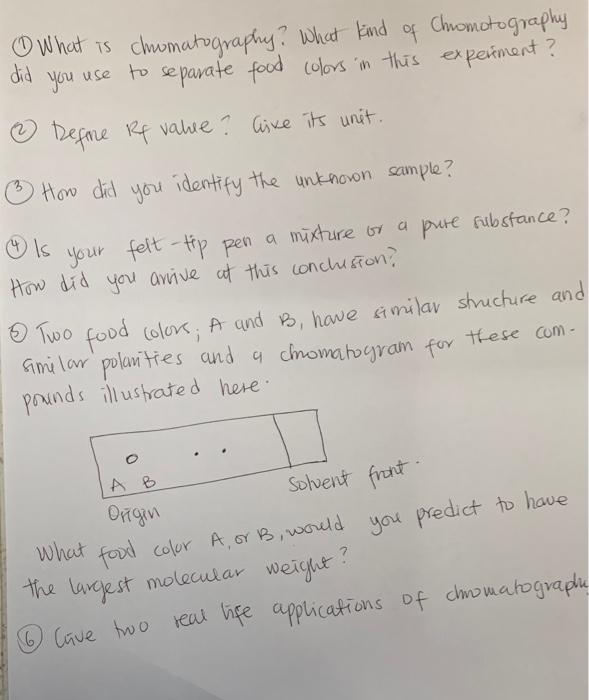 ① What is chromatography? What kind of Chromotography
did you use to separate food colors in this experiment?
② Define Rf value? Give its unit.
③ How did you identify the unknown sample?
④ Is your felt-tip pen a mixture or a pure substance?
How did you arrive at this conclusion?
⑤ Two food colors; A and B, have similar structure and
similar polarities and a chromatogram for these com-
pounds illustrated here.
A B
Origin
Solvent front.
What food color A, or B, would you predict to have
the largest molecular weight?
⑥ Give two real life applications of chromatography